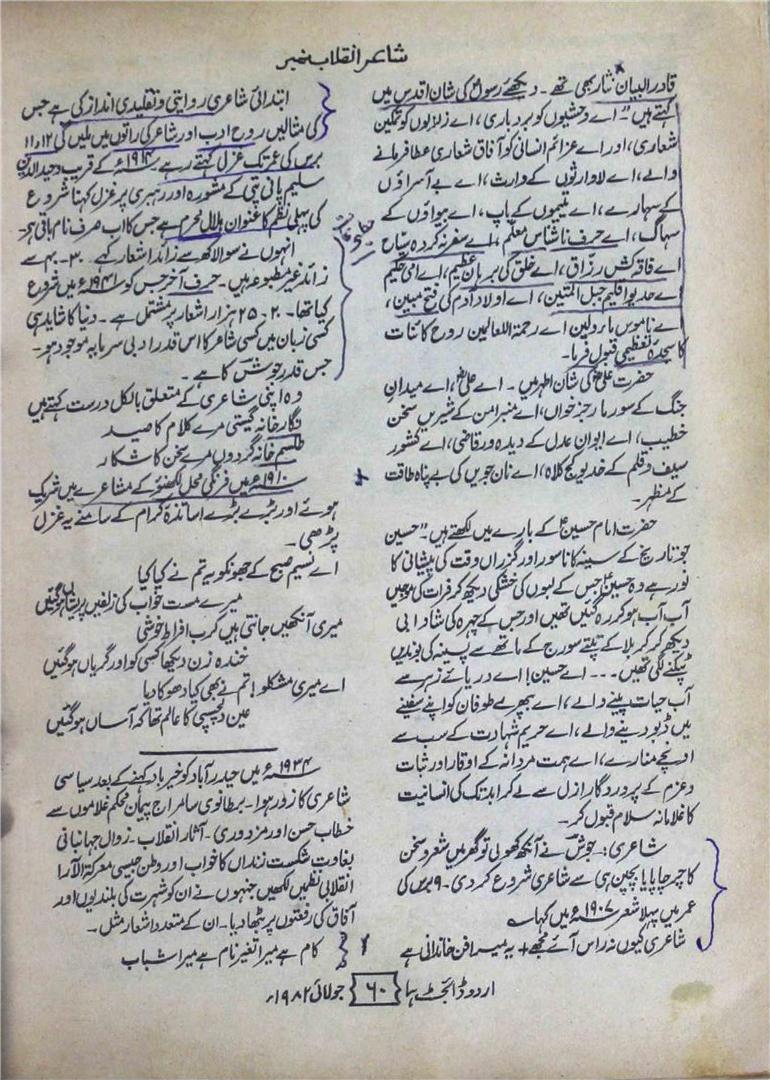 شاعر انقلاب نمبر
قادر البیان نثار بھی تھے۔ دیکھئے رسولؐ کی شان اقدس میں
کہتے ہیں "اے وحشیوں کو بردباری، اے زلابوں کو تمکین
شعاری، اور اے عزائم انسانی کو آفاق شعاری عطا فرمانے
والے، اے لاوارثوں کے وارث، اے بے آسراؤں
کے سہارے، اے یتیموں کے باپ، اے بیواؤں کے
سہاگ، اے حرف ناشناس معلم، اے سفر نہ کردہ سیاح
اے فاقہ کش رزّاق، اے خلق کی برہان عظیم، اے امی حکیم
اے خدیو اقلیم حبل المتین، اے اولاد آدم کی فتح مبین،
اے ناموس ماء وطین اے رحمۃ اللعالمین روح کائنات
کا سجدۂ تعظیمی قبول فرما۔
حضرت علیؓ کی شان اطہر میں۔ اے علیؓ، اے میدان
جنگ کے سورما رجز خواں، اے منبر امن کے شیریں سخن
خطیب، اے ایوان عدل کے دیدہ ور قاضی، اے کشور
سیف و قلم کے خدیو کج کلاہ، اے نان جویں کی بے پناہ طاقت
کے مظہر۔
حضرت امام حسینؑ کے بارے میں لکھتے ہیں۔ "حسین
جو تاریخ کے سینہ کا ناسور اور گزراں وقت کی پیشانی کا
نور ہے وہ حسینؑ جس کے لبوں کی خشکی دیکھ کر فرات کی موجیں
آب آب ہو کر رہ گئیں تھیں اور جس کے چہرہ کی شادابی
دیکھ کر کربلا کے تپتے سورج کے ماتھے سے پسینہ کی بوندیں
ٹپکنے لگی تھیں۔۔۔۔ اے حسین! اے دریائے زہر سے
آب حیات پینے والے، اے بپھرے طوفان کو اپنے سفینے
میں ڈبو دینے والے، اے حریم شہادت کے سب سے
اونچے منارے، اے ہمت مردانہ کے اوقار اور ثبات
و عزم کے پروردگار ازل سے لے کر ابد تک کی انسانیت
کا غلامانہ سلام قبول کر۔
شاعری:۔ جوش نے آنکھ کھولی تو گھر میں شعر و سخن
کا چرچا پایا بچپن ہی سے شاعری شروع کر دی۔ ۹ برس کی
عمر میں پہلا شعر ۱۹۰۷ء میں کہا۔
شاعری کیوں نہ راس آئے مجھے + یہ میرا فن خاندانی ہے
ابتدائی شاعری روایتی و تقلیدی انداز کی ہے جس
کی مثالیں روح ادب اور شاعر کی راتوں میں ملیں گی ۱۲، ۱۱
برس کی عمر تک غزل کہتے رہے ۱۹۱۴ء کے قریب وحید الدین
سلیم پانی پتی کے مشورہ اور رہبری پر غزل کہنا شروع
کی پہلی نظم کا عنوان ہلال محرم ہے جس کا اب صرف نام باقی ہے۔
انہوں نے سوا لاکھ سے زائد اشعار کہے ۳۰۔۴۰ سے
زائد غیر مطبوعہ ہیں۔ حرف آخر جس کو ۱۹۴۱ء میں شروع
کیا تھا۔ ۲۰۔۲۵ ہزار اشعار پر مشتمل ہے۔ دنیا کا شاید ہی
کسی زبان میں کسی شاعر کا اس قدر ادبی سرمایہ موجود ہو۔
جس قدر جوش کا ہے۔
وہ اپنی شاعری کے متعلق بالکل درست کہتے ہیں
نگار خانہ گیتی مرے کلام کا صید
طلسم خانہ گردوں مرے سخن کا شکار
۱۹۱۰ء میں فرنگی محل لکھنؤ کے مشاعرے میں شریک
ہوئے اور بڑے بڑے اساتذہ کرام کے سامنے یہ غزل
پڑھی۔
اے نسیم صبح کے جھونکو یہ تم نے کیا کیا
میرے مست خواب کی زلفیں پریشاں ہو گئیں
میری آنکھیں جانتی ہیں کرب افراط خوشی
خندہ زن دیکھا کسی کو اور گریاں ہو گئیں
اے میری مشکلو! تم نے بھی کیا دھوکا دیا
عین دلچسپی کا عالم تھا کہ آساں ہو گئیں
۱۹۳۴ء میں حیدرآباد کو خیرباد کہنے کے بعد سیاسی
شاعری کا زور ہوا۔ برطانوی سامراج پیمان محکم غلاموں سے
خطاب حسن اور مزدوری۔ آثار انقلاب۔ زوال جہانبانی
بغاوت شکست زنداں کا خواب اور وطن جیسی معرکۃ الآرا
انقلابی نظمیں لکھیں جنہوں نے ان کو شہرت کی بلندیوں اور
آفاق کی رفعتوں پر بٹھا دیا۔ ان کے متعدد اشعار مثل۔
کام ہے میرا تغیر نام ہے میرا شباب
اردو ڈائجسٹ ہما ۶۰ جولائی ۱۹۸۲ء